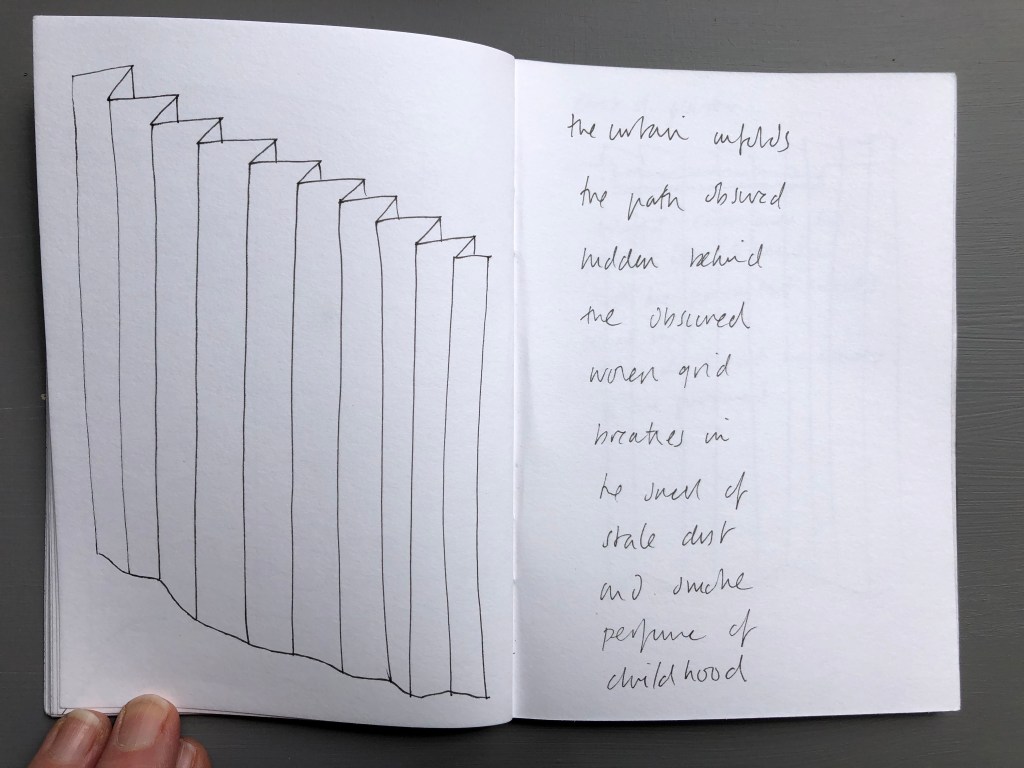 the curtain unfolds
the path obscured
hidden behind
the obscured
woven grid
breathes in
the smell of
stale dust
and smoke
perfume of
childhood